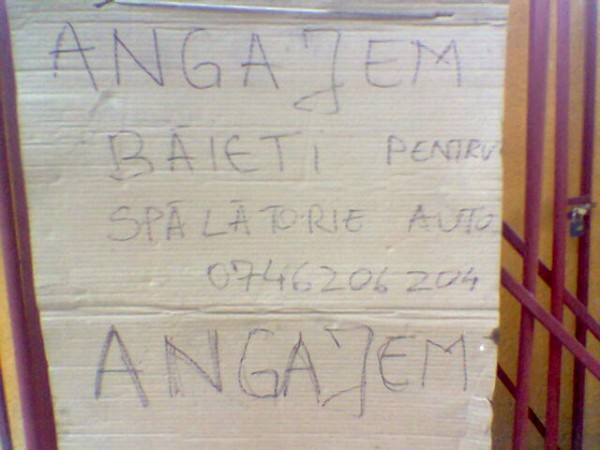 ANGAJEM
BĂIEȚI PENTRU
SPĂLĂTORIE AUTO
0746206204
ANGAJEM